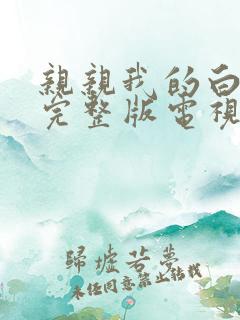 親親我的白
完整版電視
歸墟若夢
未經同意禁止轉載